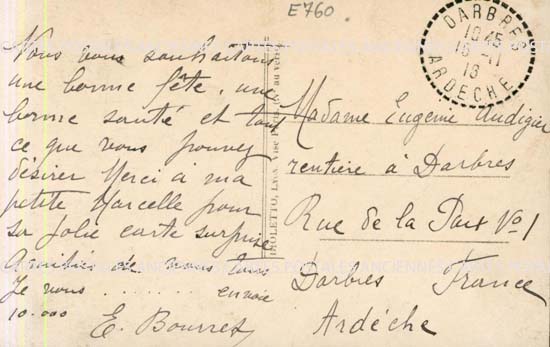 E760
DARBRES
1045
16-11
13
ARDECHE
Nous vous souhaitons
une bonne fête, une
bonne santé et tout
ce que vous pouvez
désirer Merci à ma
petite Marcelle pour
sa jolie carte surprise
de nous tous
Je vous ........ envoie
10.000
E. Bourret
Madame Eugenie Audigier
rentière à Darbres
Rue de la Paix No 1
Darbres France
Ardèche